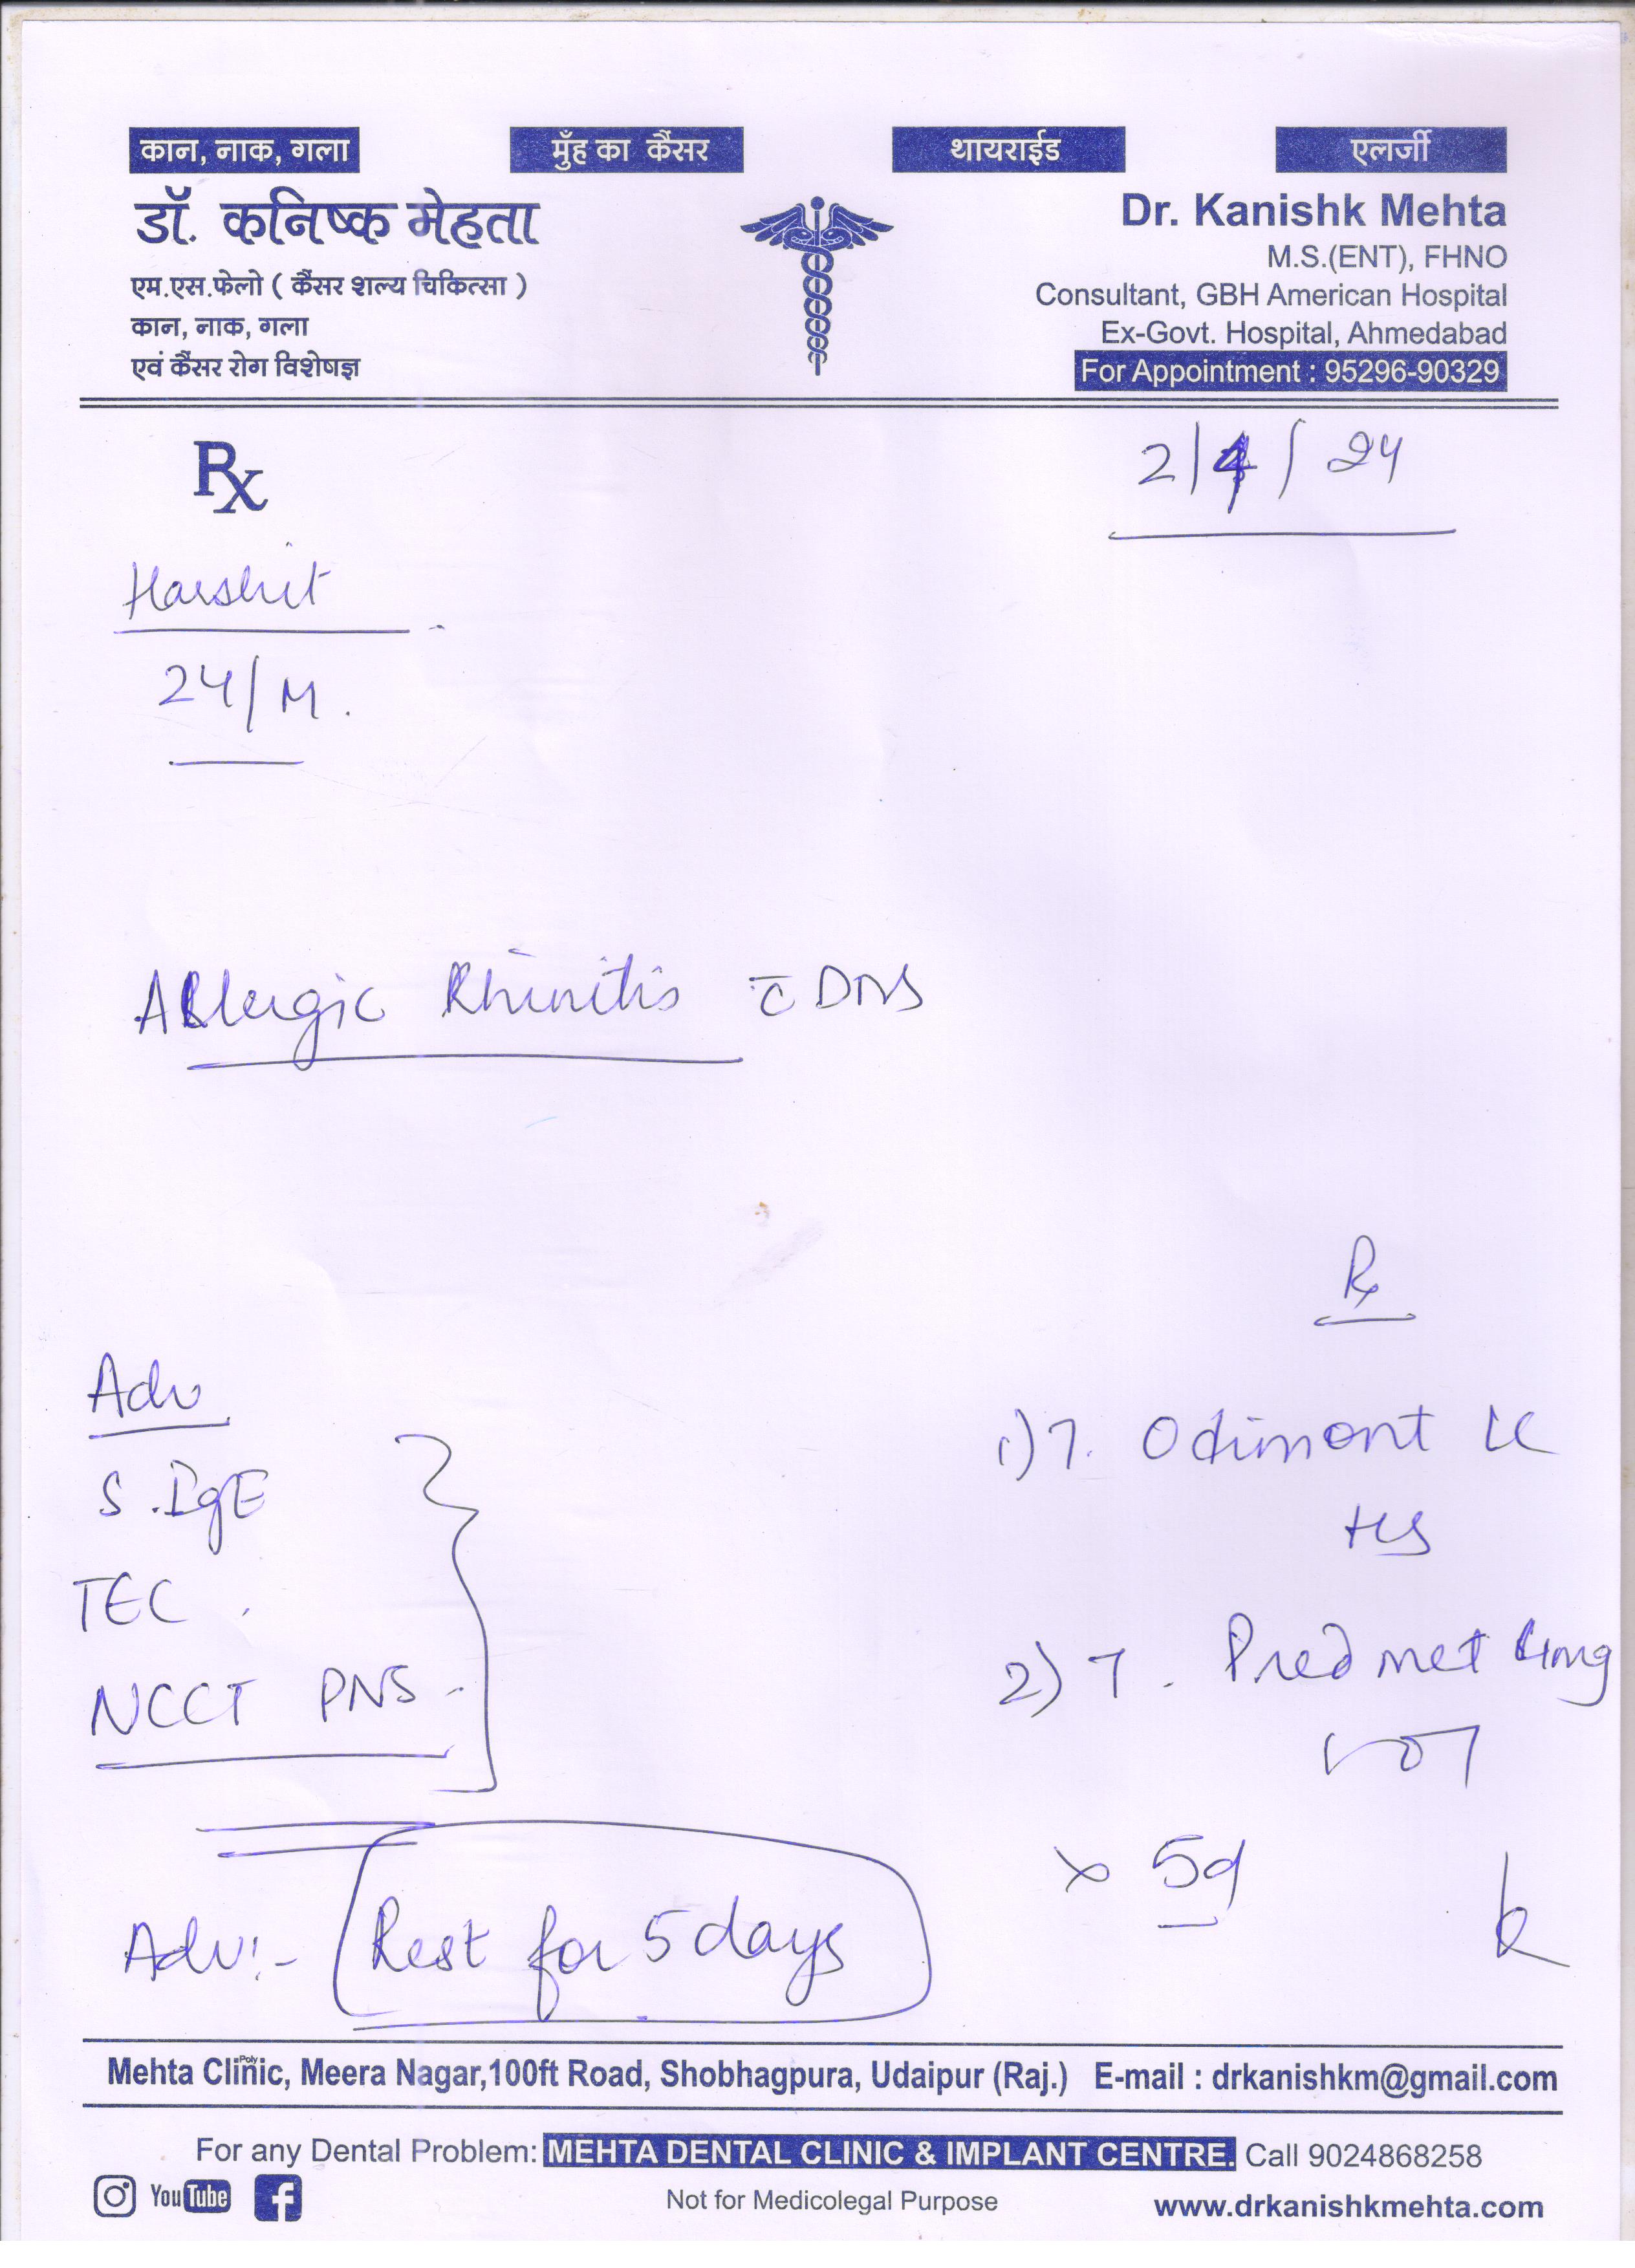 कान, नाक, गला
मुँह का कैंसर
थायराईड
एलर्जी
डॉ. कनिष्क मेहता
एम.एस.फेलो ( कैंसर शल्य चिकित्सा )
कान, नाक, गला
एवं कैंसर रोग विशेषज्ञ
Dr. Kanishk Mehta
M.S.(ENT), FHNO
Consultant, GBH American Hospital
Ex-Govt. Hospital, Ahmedabad
For Appointment : 95296-90329
Rx
2/4/24
Harshit
24/M.
Allergic Rhinitis c̄ DNS
Adv
S. IgE
TEC
NCCT PNS
Rx
1) T. Odimont LC
HS
2) T. Predmet 4mg
x 5d
Adv:- Rest for 5 days
Mehta Poly Clinic, Meera Nagar,100ft Road, Shobhagpura, Udaipur (Raj.) E-mail : drkanishkm@gmail.com
For any Dental Problem: MEHTA DENTAL CLINIC & IMPLANT CENTRE. Call 9024868258
YouTube
Not for Medicolegal Purpose
www.drkanishkmehta.com